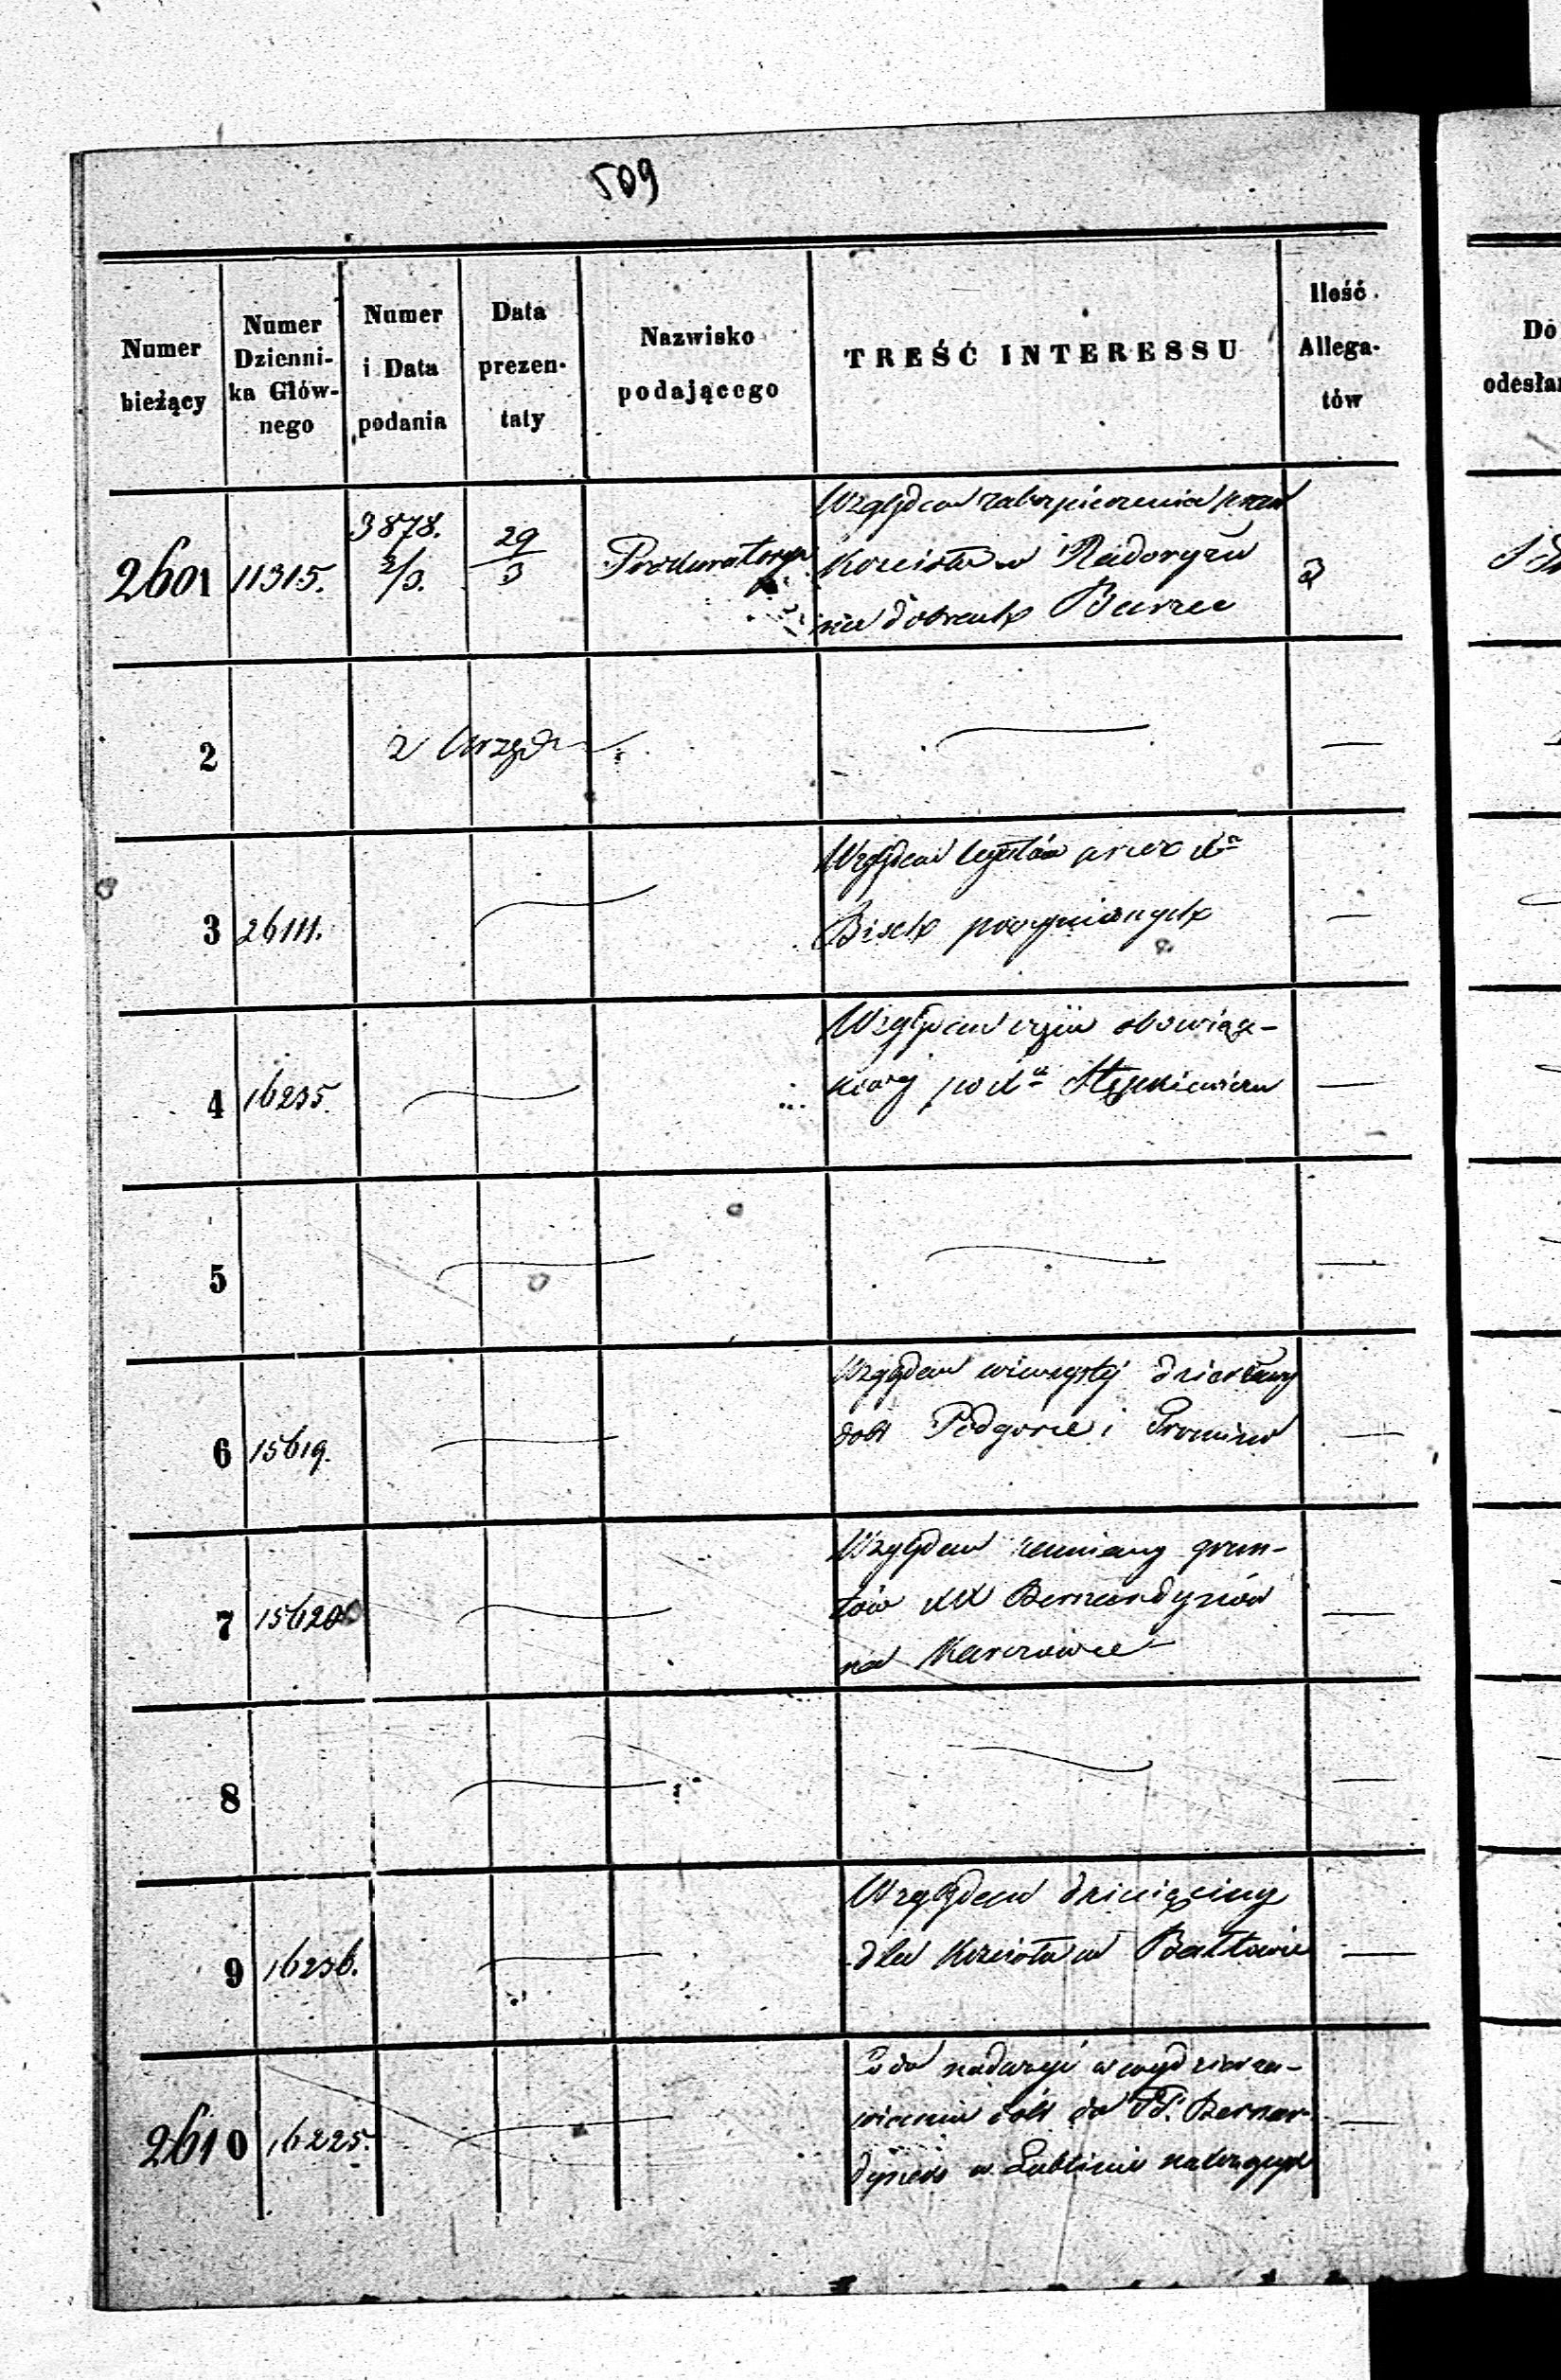 509
Numer bieżący
Numer Dzienni-ka Głów-nego
Numer i Data podania
Data prezen-taty
Nazwisko podającego
TREŚĆ INTERESSU
Ilość Allega-tów
Do
odesłan
2601 11315. 3878. 2/3. 29/3 Prokuratorya
Względem zabezpieczenia praw
Kościoła w Radoryżu
na dobrach Burzec
2
2 z Urzędu —
3 26111. —
Względem legatów przez Xa
poczynionych —
4 16235. —
Względem obowiąz-
kowy po Xa —
5 — — —
6 15619. —
Względem wieczystej dzierżawy
dóbr Podgórze i —
7 15620 —
Względem zamiany grun-
tów XX Bernardynów
na —
8 — — —
9 16236. —
Względem dziesięciny
dla Kościoła w Bałtowie —
2610 16225. —
Co do nadużyć w wydzierża-
wieniu dóbr do PP. Bernar-
dynek w Lublinie należących —